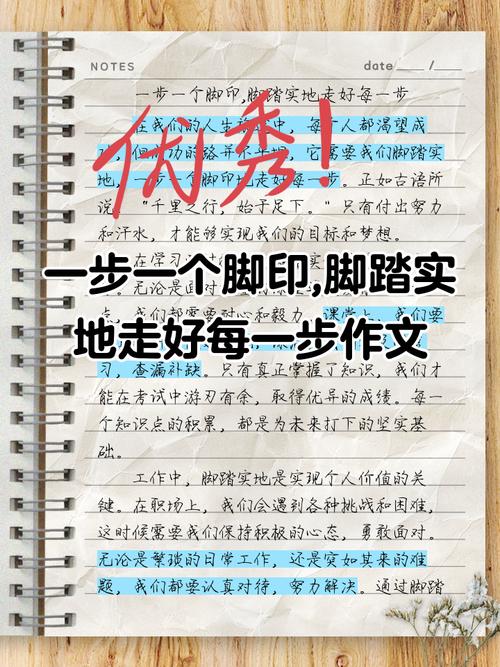 NOTES
date ____ /____
一步一个脚印,脚踏实地走好每一步
在我们的人生 中，每 人都渴望成
但 功的路并不平坦，它需要我们脚踏实
地，一步一个脚印地走好每一步。正如古语所
说，“千里之行，始于足下。”只有付出努力
和汗水，才能够实现我们的目标和梦想。
优秀!
在学习
一步一个脚印,脚踏实
无论是面对
我们都需要耐心和毅力。课堂上，我们要
地走好每一步作文
习，查漏补缺。只有真正掌握了知识，我们才
能在考试中游刃有余，取得优异的成绩。每一
个知识点的积累，都是为未来打下的坚实基
础。
工作中，脚踏实地是实现个人价值的关
键。在职场上，我们会遇到各种挑战和困难，
这时候需要我们保持积极的心态，勇敢面对。
无论是繁琐的日常工作，还是突如其来的难
题，我们都要认真对待，努力解决。通过脚踏